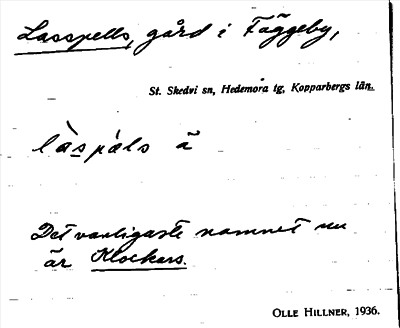 Lasspells, gård i Fäggeby,
St. Skedvi sn, Hedemora tg, Kopparbergs län.
làspáls ä
Det vanligaste namnet nu
är Klockars.
OLLE HILLNER, 1936.